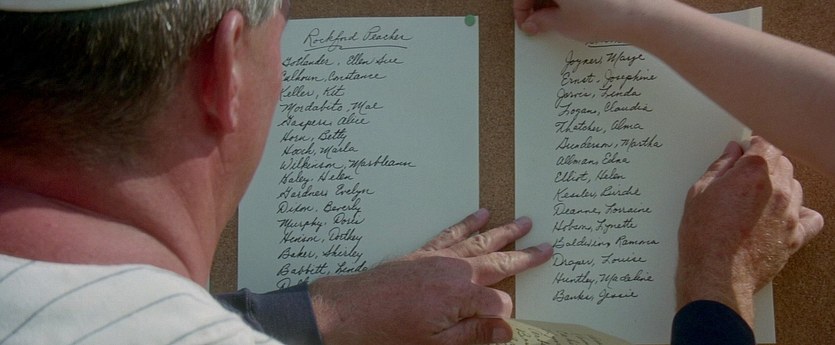 Rockford Peaches
Gotlander, Ellen Sue
Calhoun, Constance
Keller, Kit
Mordabito, Mae
Gaspers, Alice
Horn, Betty
Hooch, Marla
Wilkinson, Marbleann
Haley, Helen
Gardner, Evelyn
Dixon, Beverly
Murphy, Doris
Henson,
Baker, Shirley
Babbett, Linda
Joyner, Marge
Ernst, Josephine
Jarvis, Linda
Logan, Claudia
Thatcher, Alma
Gunderson, Martha
Allman, Edna
Elliot, Helen
Kessler, Birdie
Deanne, Lorraine
Hobson, Lynette
Baldwin,
Draper, Louise
Huntley, Madeline
Banks, Jessie